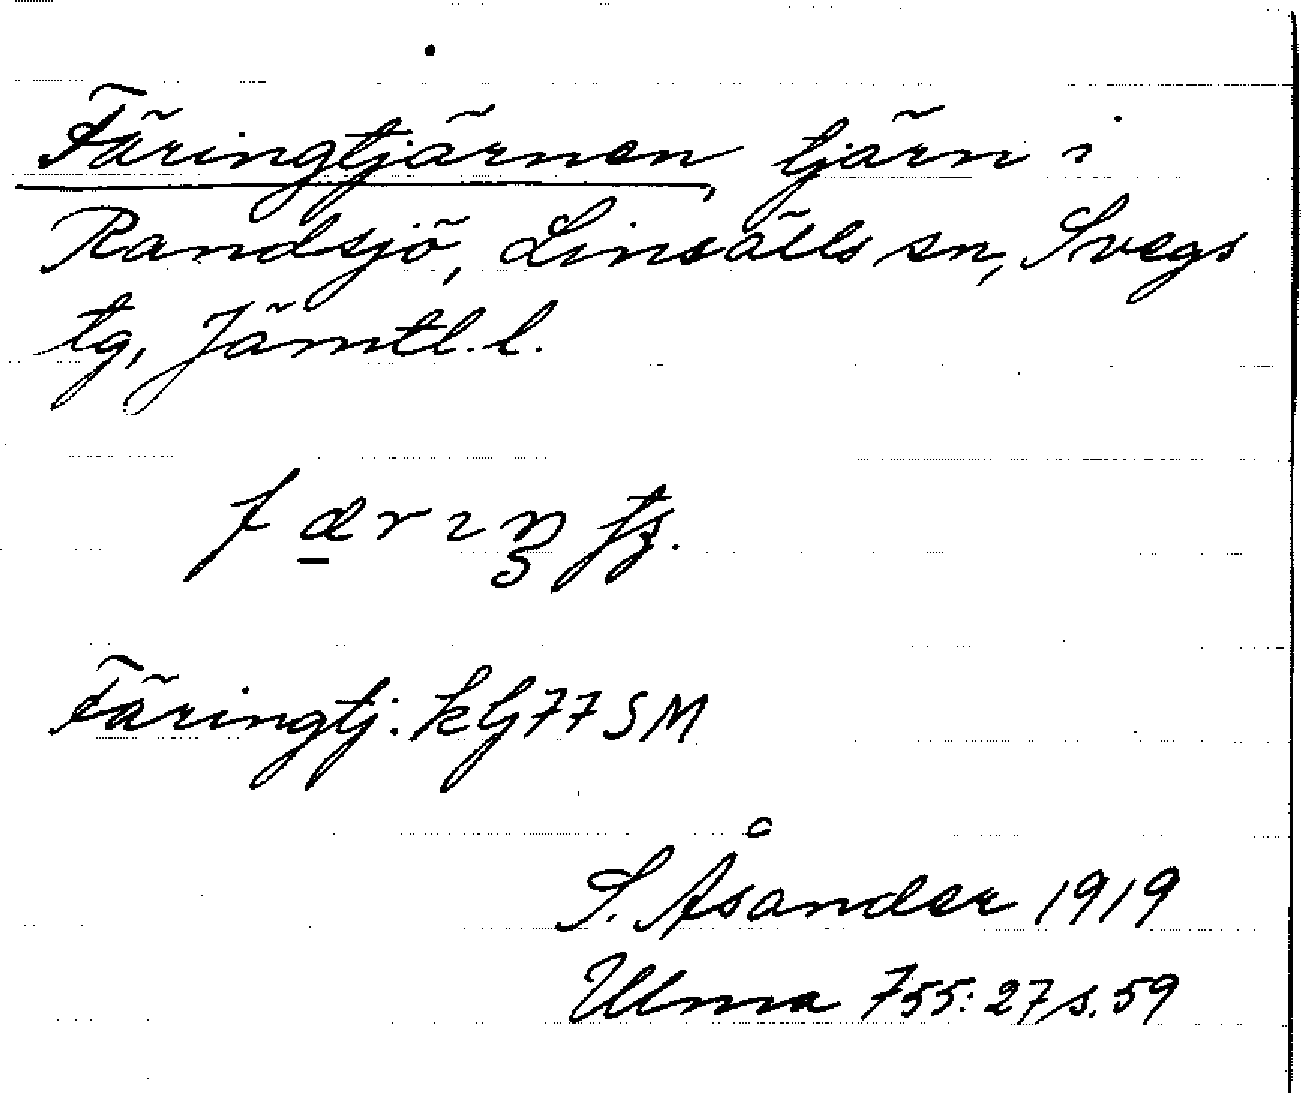 Färingtjärnen, tjärn i
Randsjö, Linsälls sn, Svegs
tg, Jämtl. l.
Färingtj. k lj 77 SM
S. Åsander 1919
Ulma 755:27 s. 59